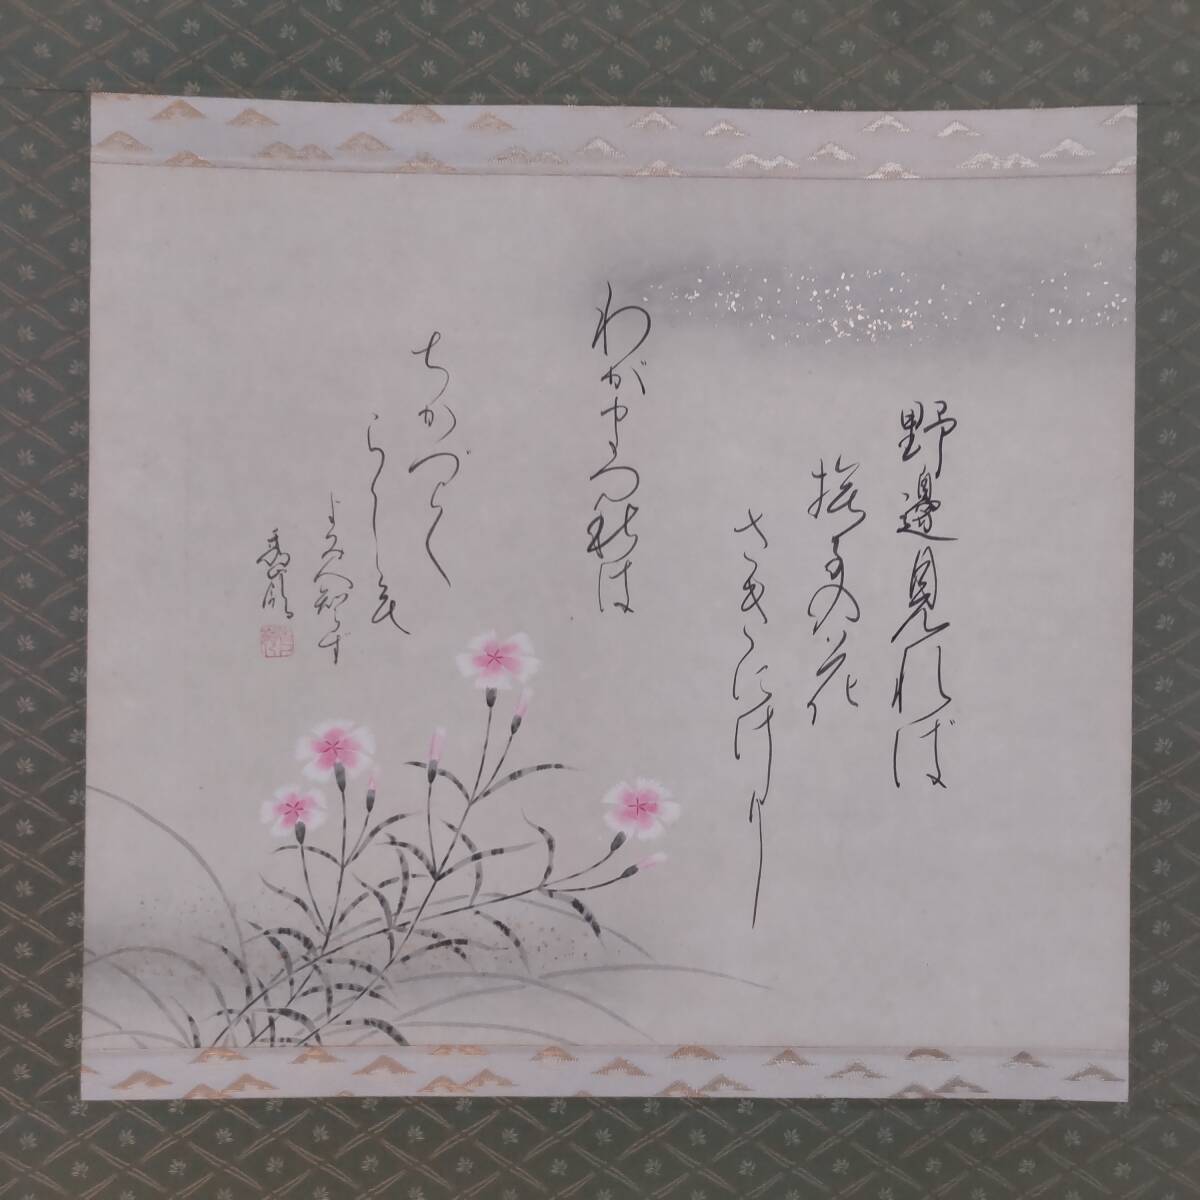 野邊見れば
撫子の花
さきにけり
わがまつ秋は
ちかづく
らしも
よみ人知らず